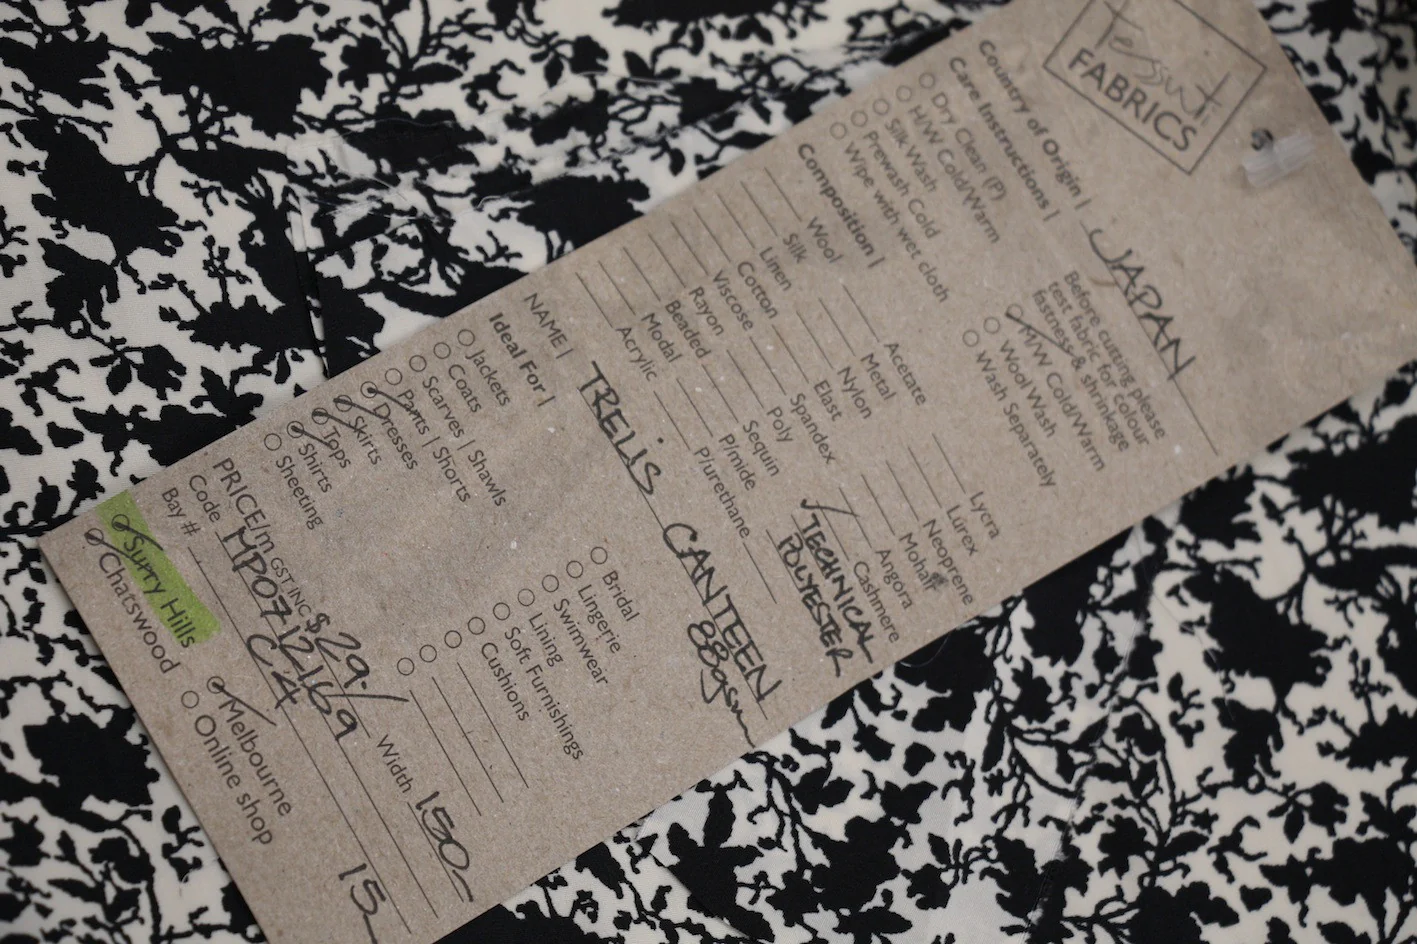 tessuti
FABRICS
Country of Origin | JAPAN
Care Instructions |
Dry Clean (P)
H/W Cold/Warm
Silk Wash
Prewash Cold
Wipe with wet cloth
Before cutting please
test fabric for colour
fastness & shrinkage
M/W Cold/Warm
Wool Wash
Wash Separately
Composition |
Wool
Silk
Linen
Cotton
Viscose
Rayon
Beaded
Modal
Acrylic
Acetate
Metal
Nylon
Elast
Spandex
Poly
Sequin
P/mide
P/urethane
Lycra
Lurex
Neoprene
Mohair
Angora
Cashmere
TECHNICAL
POLYESTER
NAME | TRELIS CANTEEN
88gsm
Ideal For |
Jackets
Coats
Scarves | Shawls
Pants | Shorts
Dresses
Skirts
Tops
Shirts
Sheeting
Bridal
Lingerie
Swimwear
Lining
Soft Furnishings
Cushions
PRICE/m GST INC $29/ Width 150
Code MP0712169
Bay # C4 15
Surry Hills
Chatswood
Melbourne
Online shop